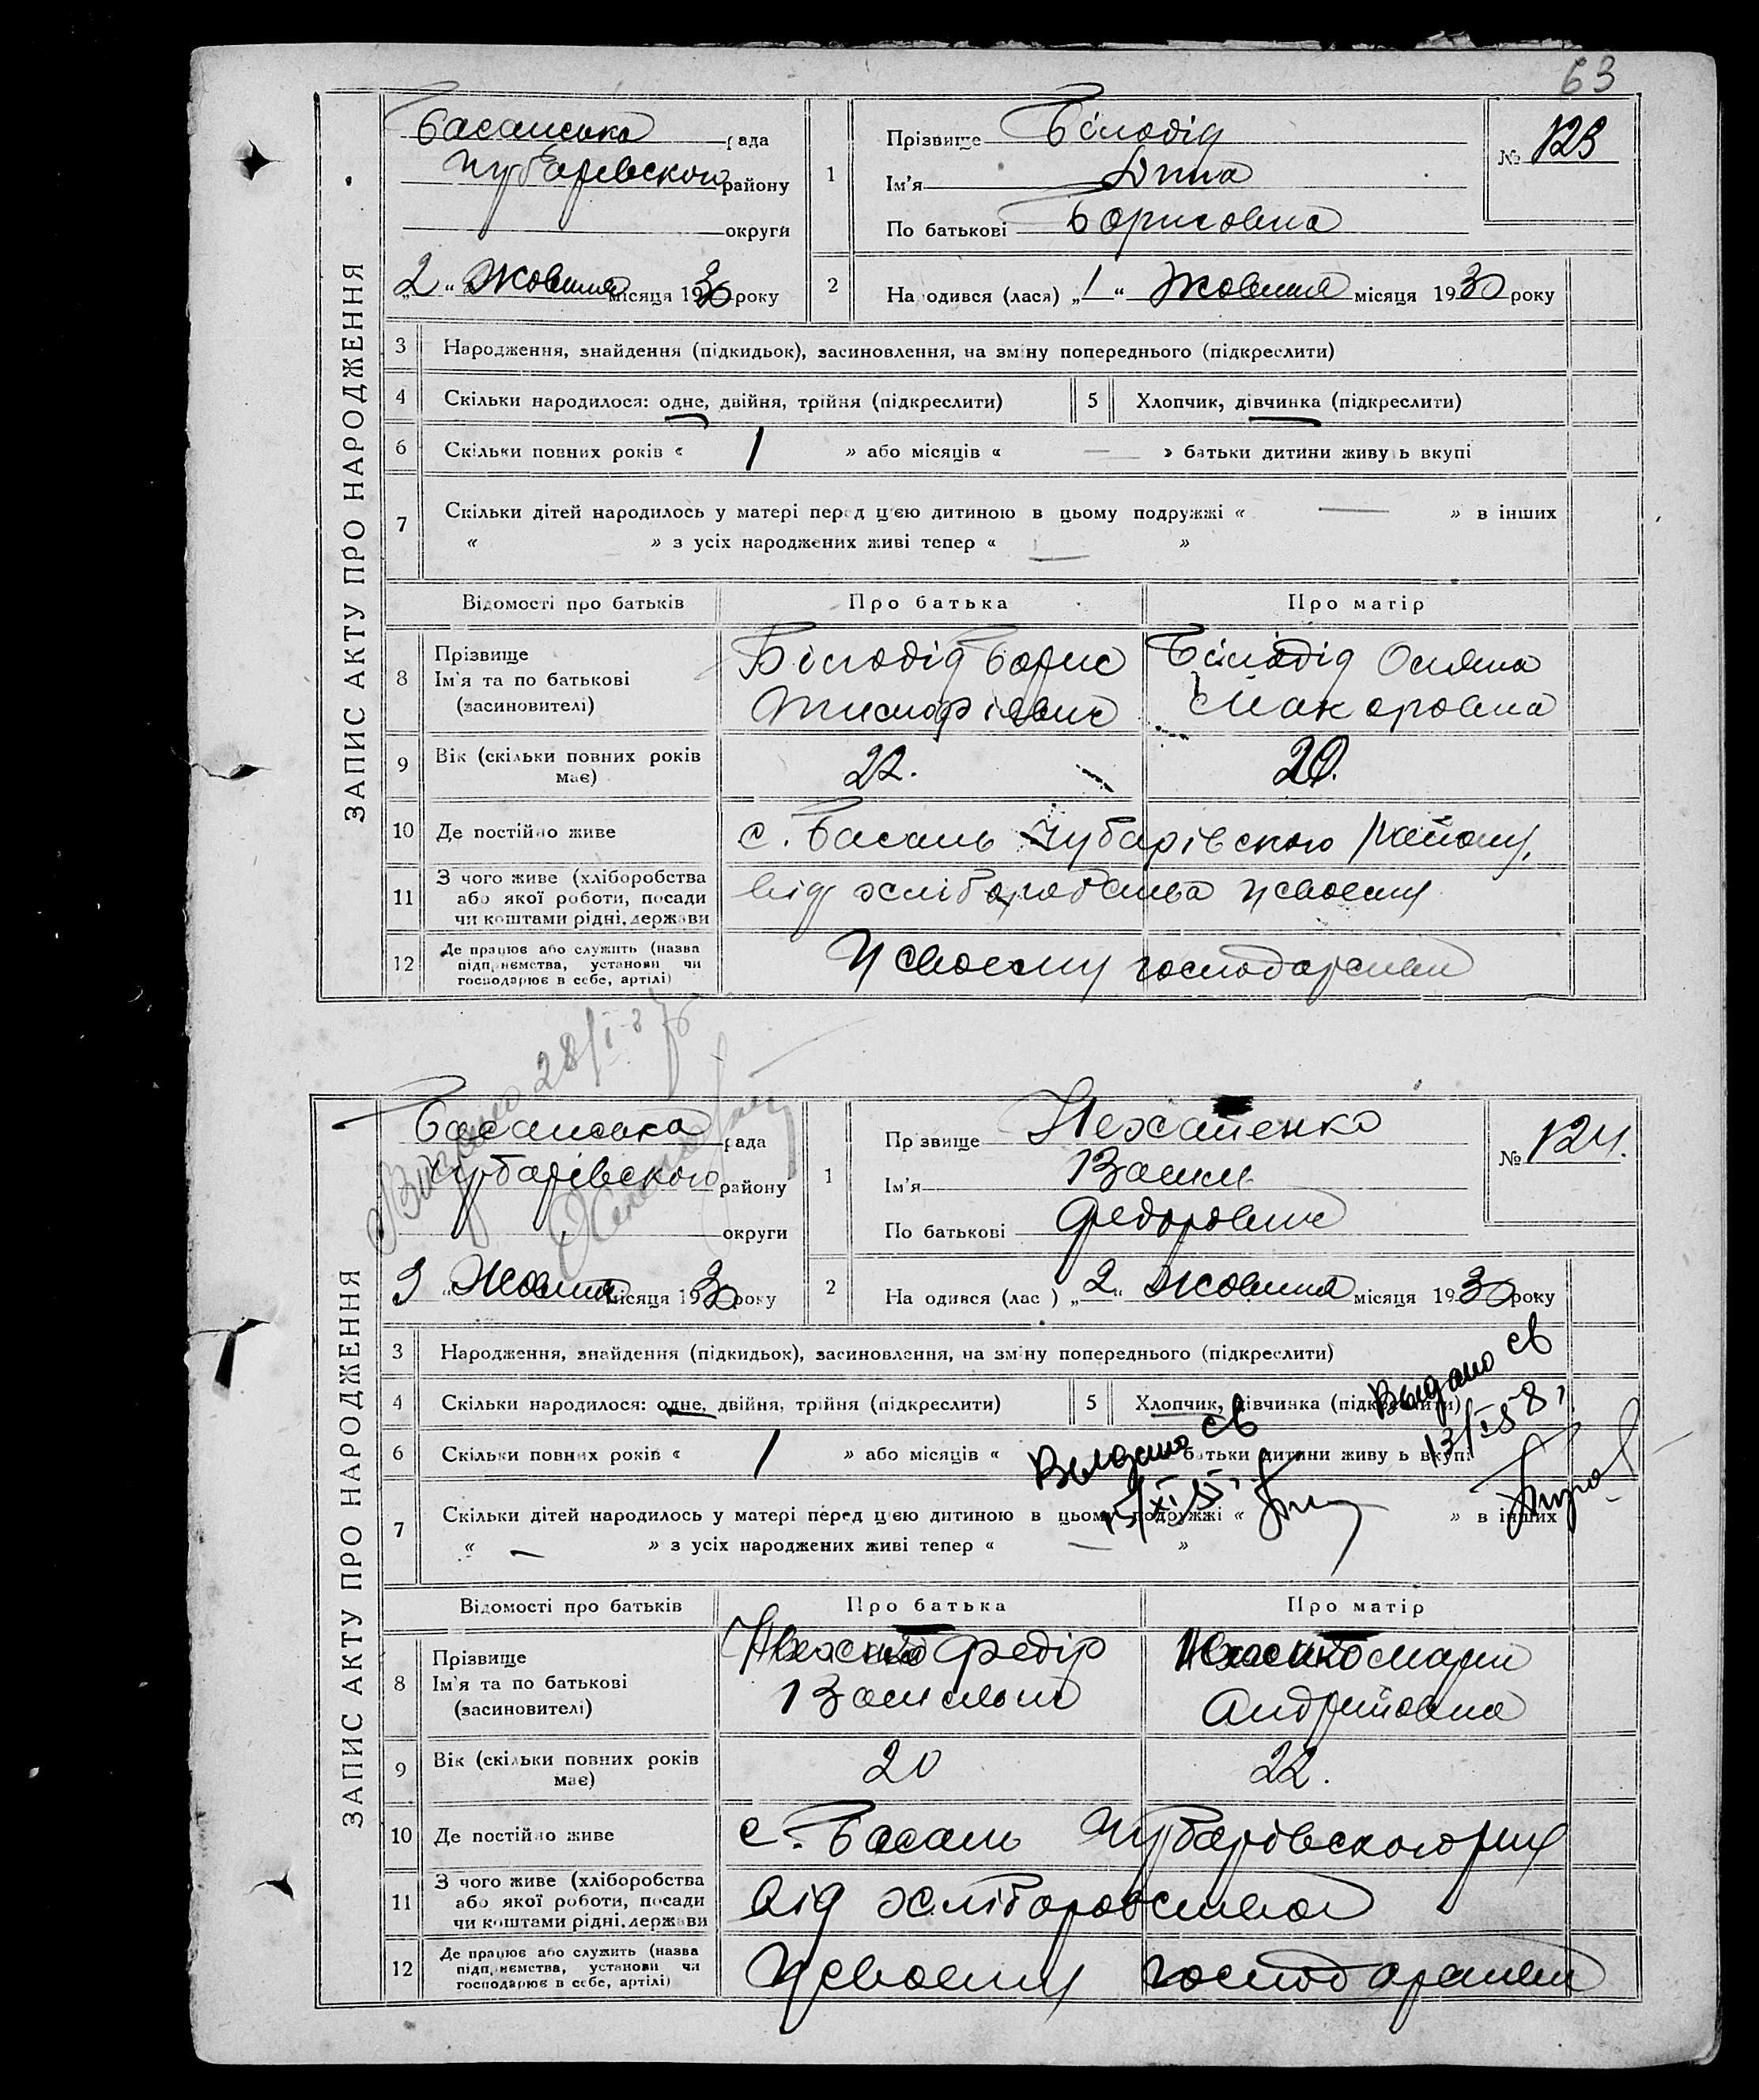 63
ЗАПИС АКТУ ПРО НАРОДЖЕННЯ
Басанська рада
Чубарівського району
округи
„2“ Жовтня місяця 1930 року
1
Прізвище Білодід
Ім'я
По батькові Борисовна
№ 123
2
Народився (лася) „1“ Жовтня місяця 1930 року
3 Народження, знайдення (підкидьок), засиновлення, на зміну попереднього (підкреслити)
4 Скільки народилося: одне, двійня, трійня (підкреслити)
5 Хлопчик, дівчинка (підкреслити)
6 Скільки повних років « 1 » або місяців « — » батьки дитини живуть вкупі
7 Скільки дітей народилось у матері перед цією дитиною в цьому подружжі « — » в інших
« » з усіх народжених живі тепер « — »
Відомості про батьків Про батька Про матір
8 Прізвище
Ім'я та по батькові
(засновителі)
Білодід Борис
Білодід
Макаровна
9 Вік (скільки повних років має)
22.
20.
10 Де постійно живе
с. Басань Чубарівського району.
11 З чого живе (хліборобства
або якої роботи, посади
чи коштами рідні, держави
від хліборобства у своему
12 Де працює або служить (назва
підприємства, установи чи
господарює в себе, артілі)
у своему господарстві
Видано 28/I-37
ЗАПИС АКТУ ПРО НАРОДЖЕННЯ
Басанська рада
Чубарівського району
округи
3 Жовтня місяця 1930 року
1
Прізвище Нехаенко
Ім'я Васил
По батькові Федорович
№ 124.
2
Народився (лас ) „2“ Жовтня місяця 1930 року
3 Народження, знайдення (підкидьок), засиновлення, на зміну попереднього (підкреслити)
4 Скільки народилося: одне, двійня, трійня (підкреслити)
5 Хлопчик, дівчинка (підкреслити)
Выдано св
13/I 58,
6 Скільки повних років « 1 » або місяців « батьки дитини живуть вкупі
Выдано св
15/XI 55,
7 Скільки дітей народилось у матері перед цією дитиною в цьому подружжі « » в інших
« — » з усіх народжених живі тепер « — »
Відомості про батьків Про батька Про матір
8 Прізвище
Ім'я та по батькові
(засиновителі)
Федір
Васильов
Мария
Андрийовна
9 Вік (скільки повних років має)
20
22.
10 Де постійно живе
с. Басань Чубарівського р-ну
11 З чого живе (хліборобства
або якої роботи, посади
чи коштами рідні, держави
від хліборобства
12 Де працює або служить (назва
підприємства, установи чи
господарює в себе, артілі)
у своему господарстві